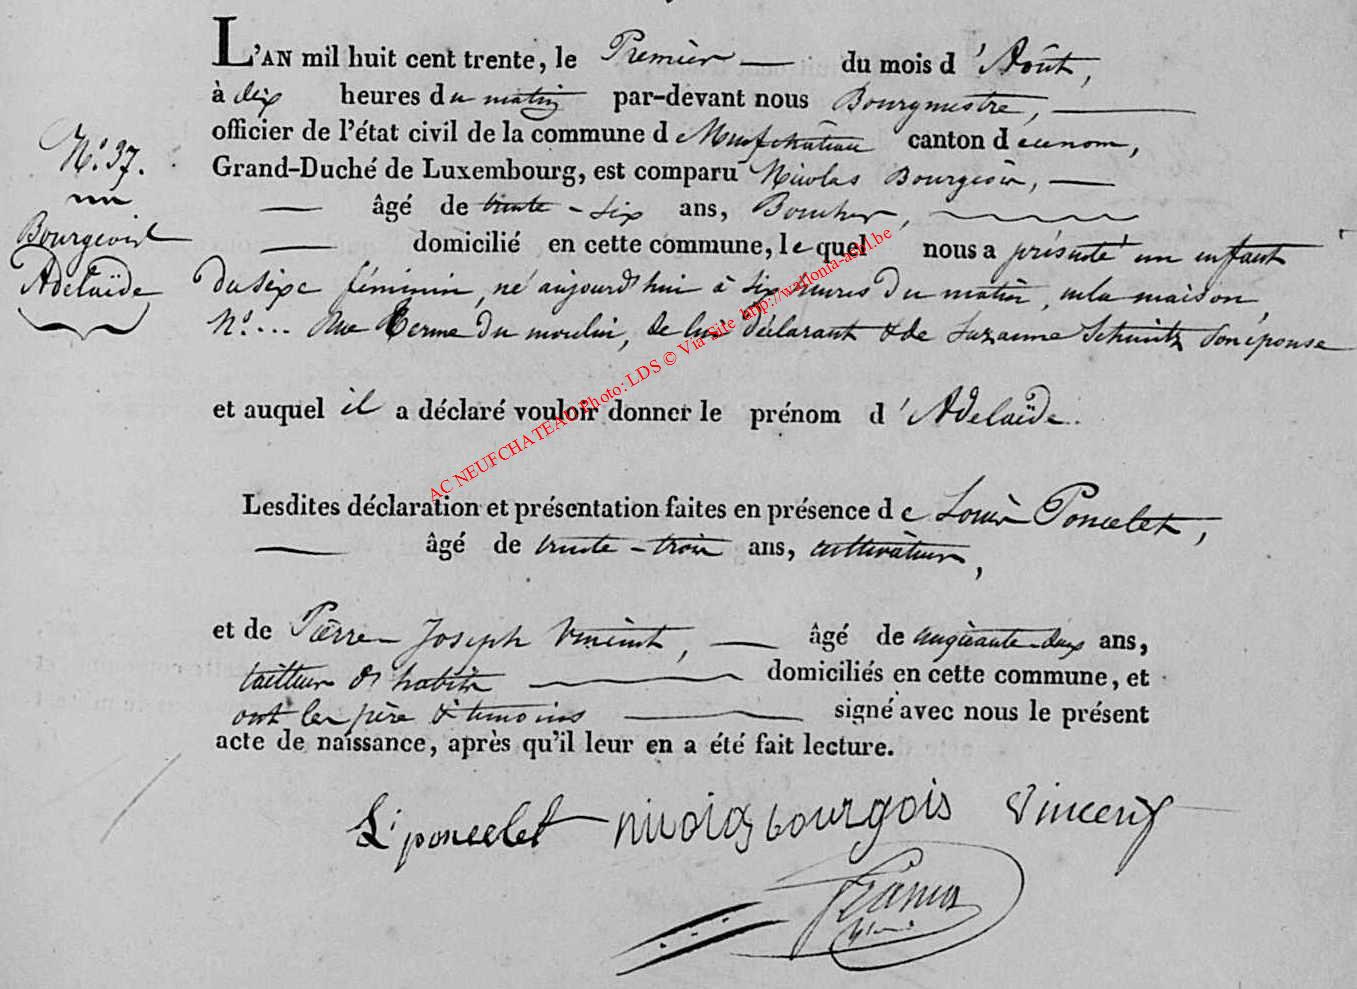 L'AN mil huit cent trente, le Premier — du mois d'Août,
à dix heures du matin par-devant nous Bourgmestre,
officier de l'état civil de la commune de Neufchâteau canton d
Grand-Duché de Luxembourg, est comparu Nicolas Bourgeois, —
— âgé de trente-six ans, Boucher,
— domicilié en cette commune, lequel nous a présenté un enfant
du sexe féminin, né aujourd'hui à six heures du matin, en la maison,
N° ... Rue du moulin, de lui déclarant & de Suzanne Schmitz son épouse
et auquel il a déclaré vouloir donner le prénom d'Adelaïde.
Lesdites déclaration et présentation faites en présence de Louis Poncelet,
— âgé de trente-trois ans, cultivateur,
et de Pierre Joseph Vincent, — âgé de cinquante-deux ans,
tailleur d'habits — domiciliés en cette commune, et
ont les père & témoins — signé avec nous le présent
acte de naissance, après qu'il leur en a été fait lecture.
N° 37.
Bourgeois
Adelaïde
L: poncelet nicolas bourgois Vincent
AC NEUFCHATEAU Photo: LDS © Via Site http://wallonia-asbl.be